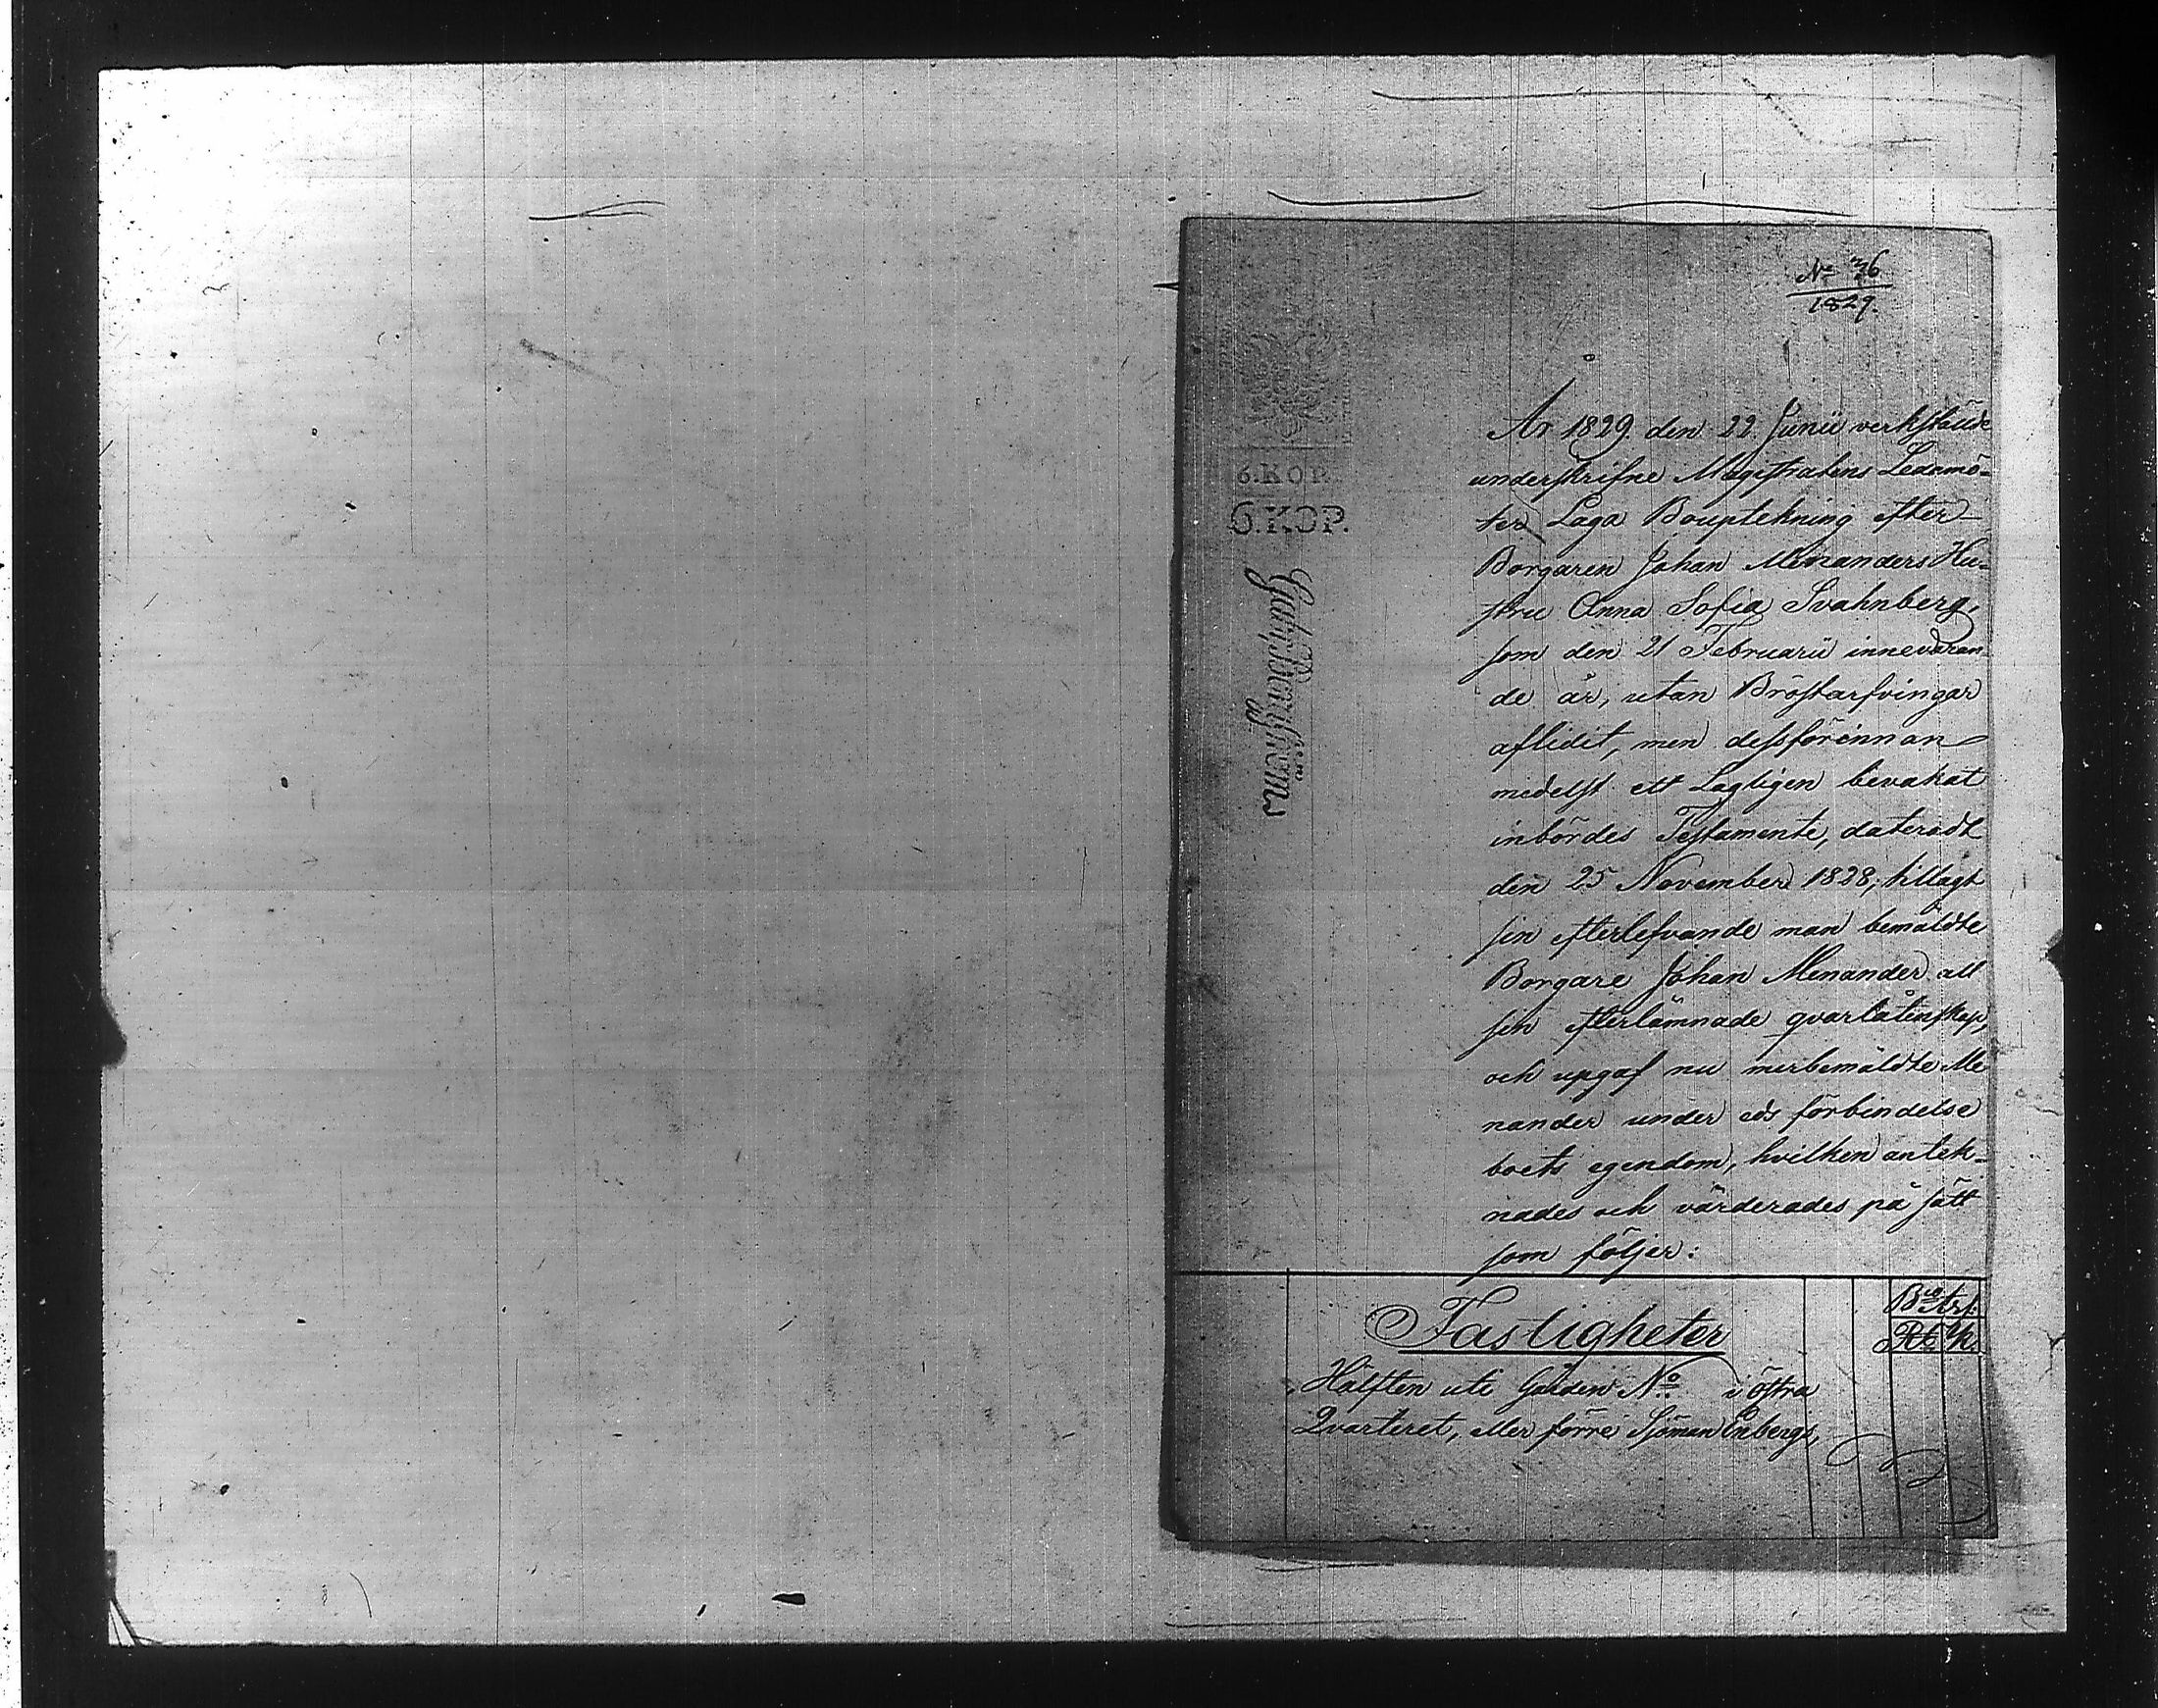 No 36
1829.
6.KOP.
6.KOP.
År 1829. den 22. Junii verkstälde
underskrifne Magistratens Ledamö-
ter Laga Bouptekning efter
Borgaren Johan Menanders Hu-
stru Anna Sofia Svahnberg,
som den 21 Februarii innevaran
de år, utan Bröstarfvingar
aflidit, men dessförinnan
medelst ett Lagligen bevakat
inbördes Testamente, dateradt
den 25 November 1828, tillagt
sin efterlefvande man bemäldte
Borgare Johan Menander all
sin efterlämnade qvarlåtenskap,
och upgaf nu merbemäldte Me
nander under eds förbindelse
boets egendom, hvilken antek-
nades och värderades på sätt
som följer:
Fastigheter
Bco
R. K.
Hälften uti Gården No i östra
Qvarteret, eller förre Sjöman Enbergs,